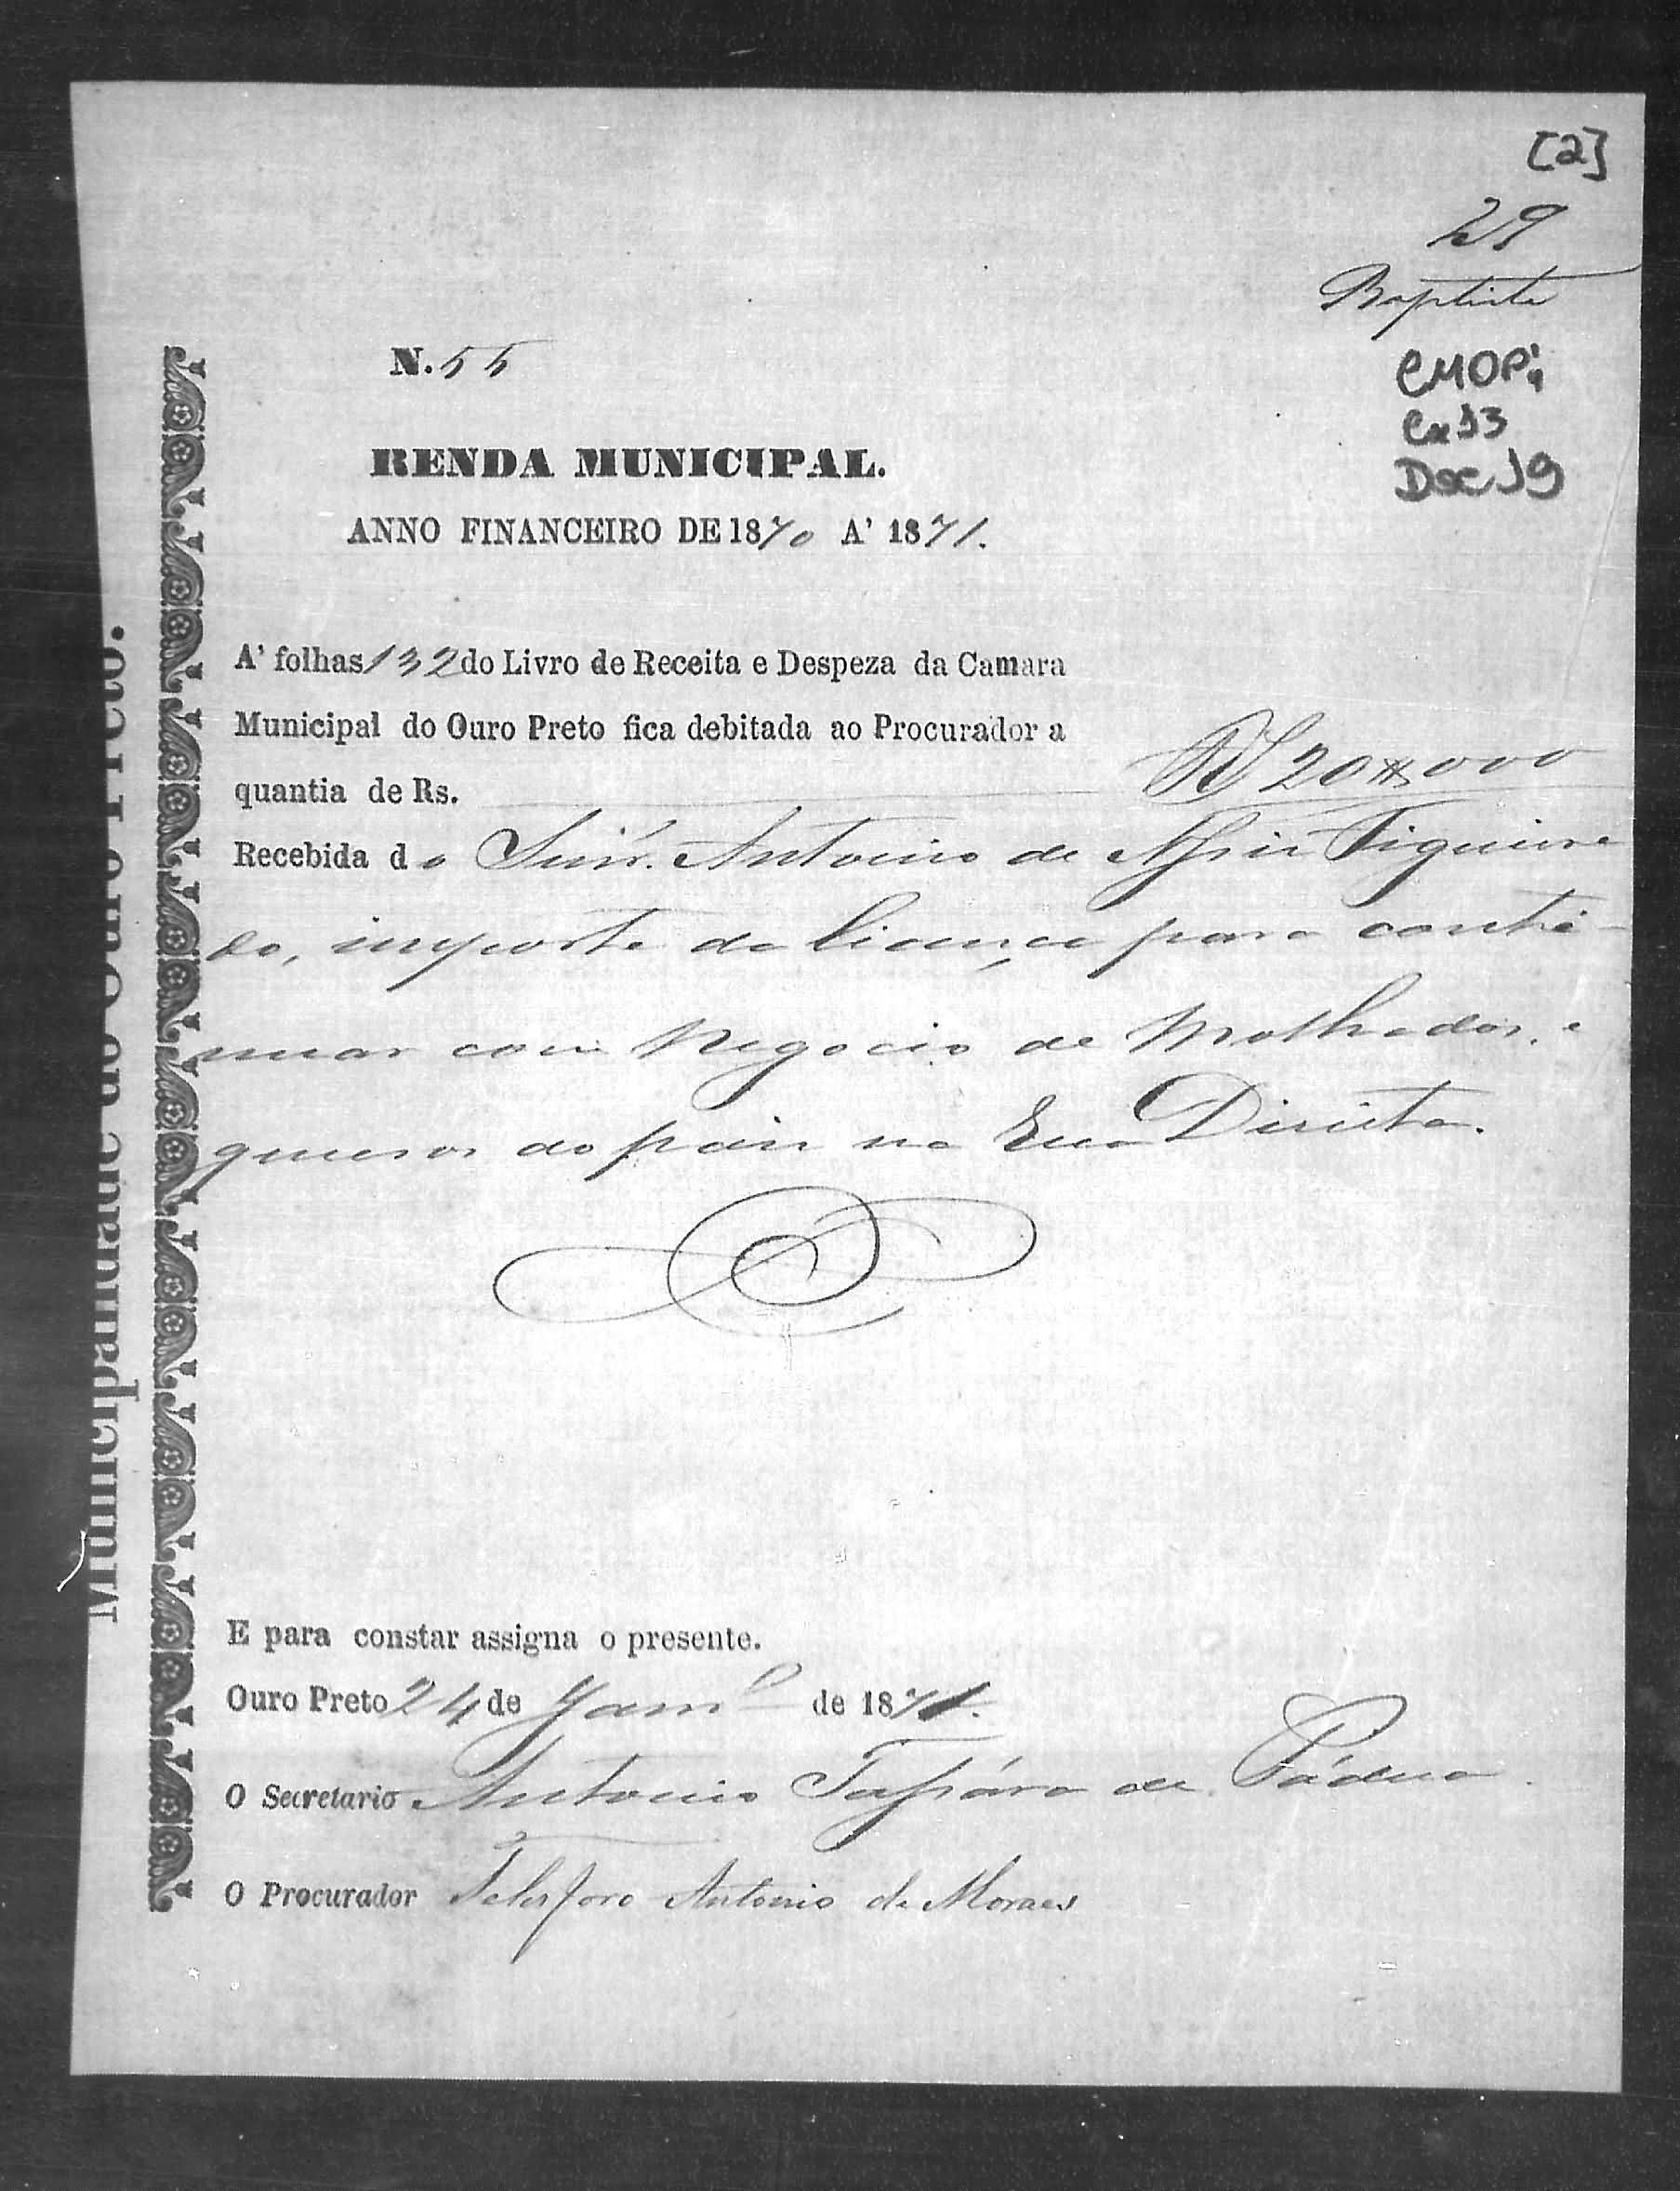 [2]
29
Baptista
CMOP:
Cx 13
Doc 19
N. 55
RENDA MUNICIPAL.
ANNO FINANCEIRO DE 1870 A' 1871.
A' folhas 132 do Livro de Receita e Despeza da Camara
Municipal do Ouro Preto fica debitada ao Procurador a
quantia de Rs. Rs 20$000
Recebida do Snr. Antonio de Assis Figueire
do, importe da licença para conti-
nuar com Negocio de Molhados, e
generos do pais na Rua Direita.
E para constar assigna o presente.
Ouro Preto 24 de Janrº de 1871.
O Secretario Antonio de Pádua
O Procurador Telesforo Antonio de Moraes
Municipalidade do Ouro Preto.